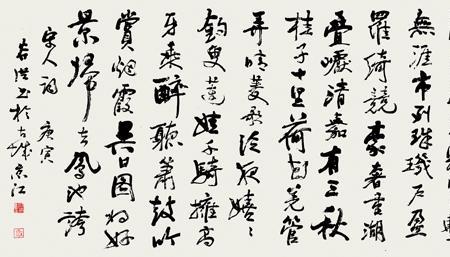 無涯市列珠璣戶盈
羅綺競豪奢重湖
疊巘清嘉有三秋
桂子十里荷花羌管
弄晴菱歌泛夜嬉〻
釣叟蓮娃千騎擁高
牙乘醉聽簫鼓吟
賞烟霞異日圖將好
景歸去鳳池誇
宋人詞 庚寅
書於古城京江